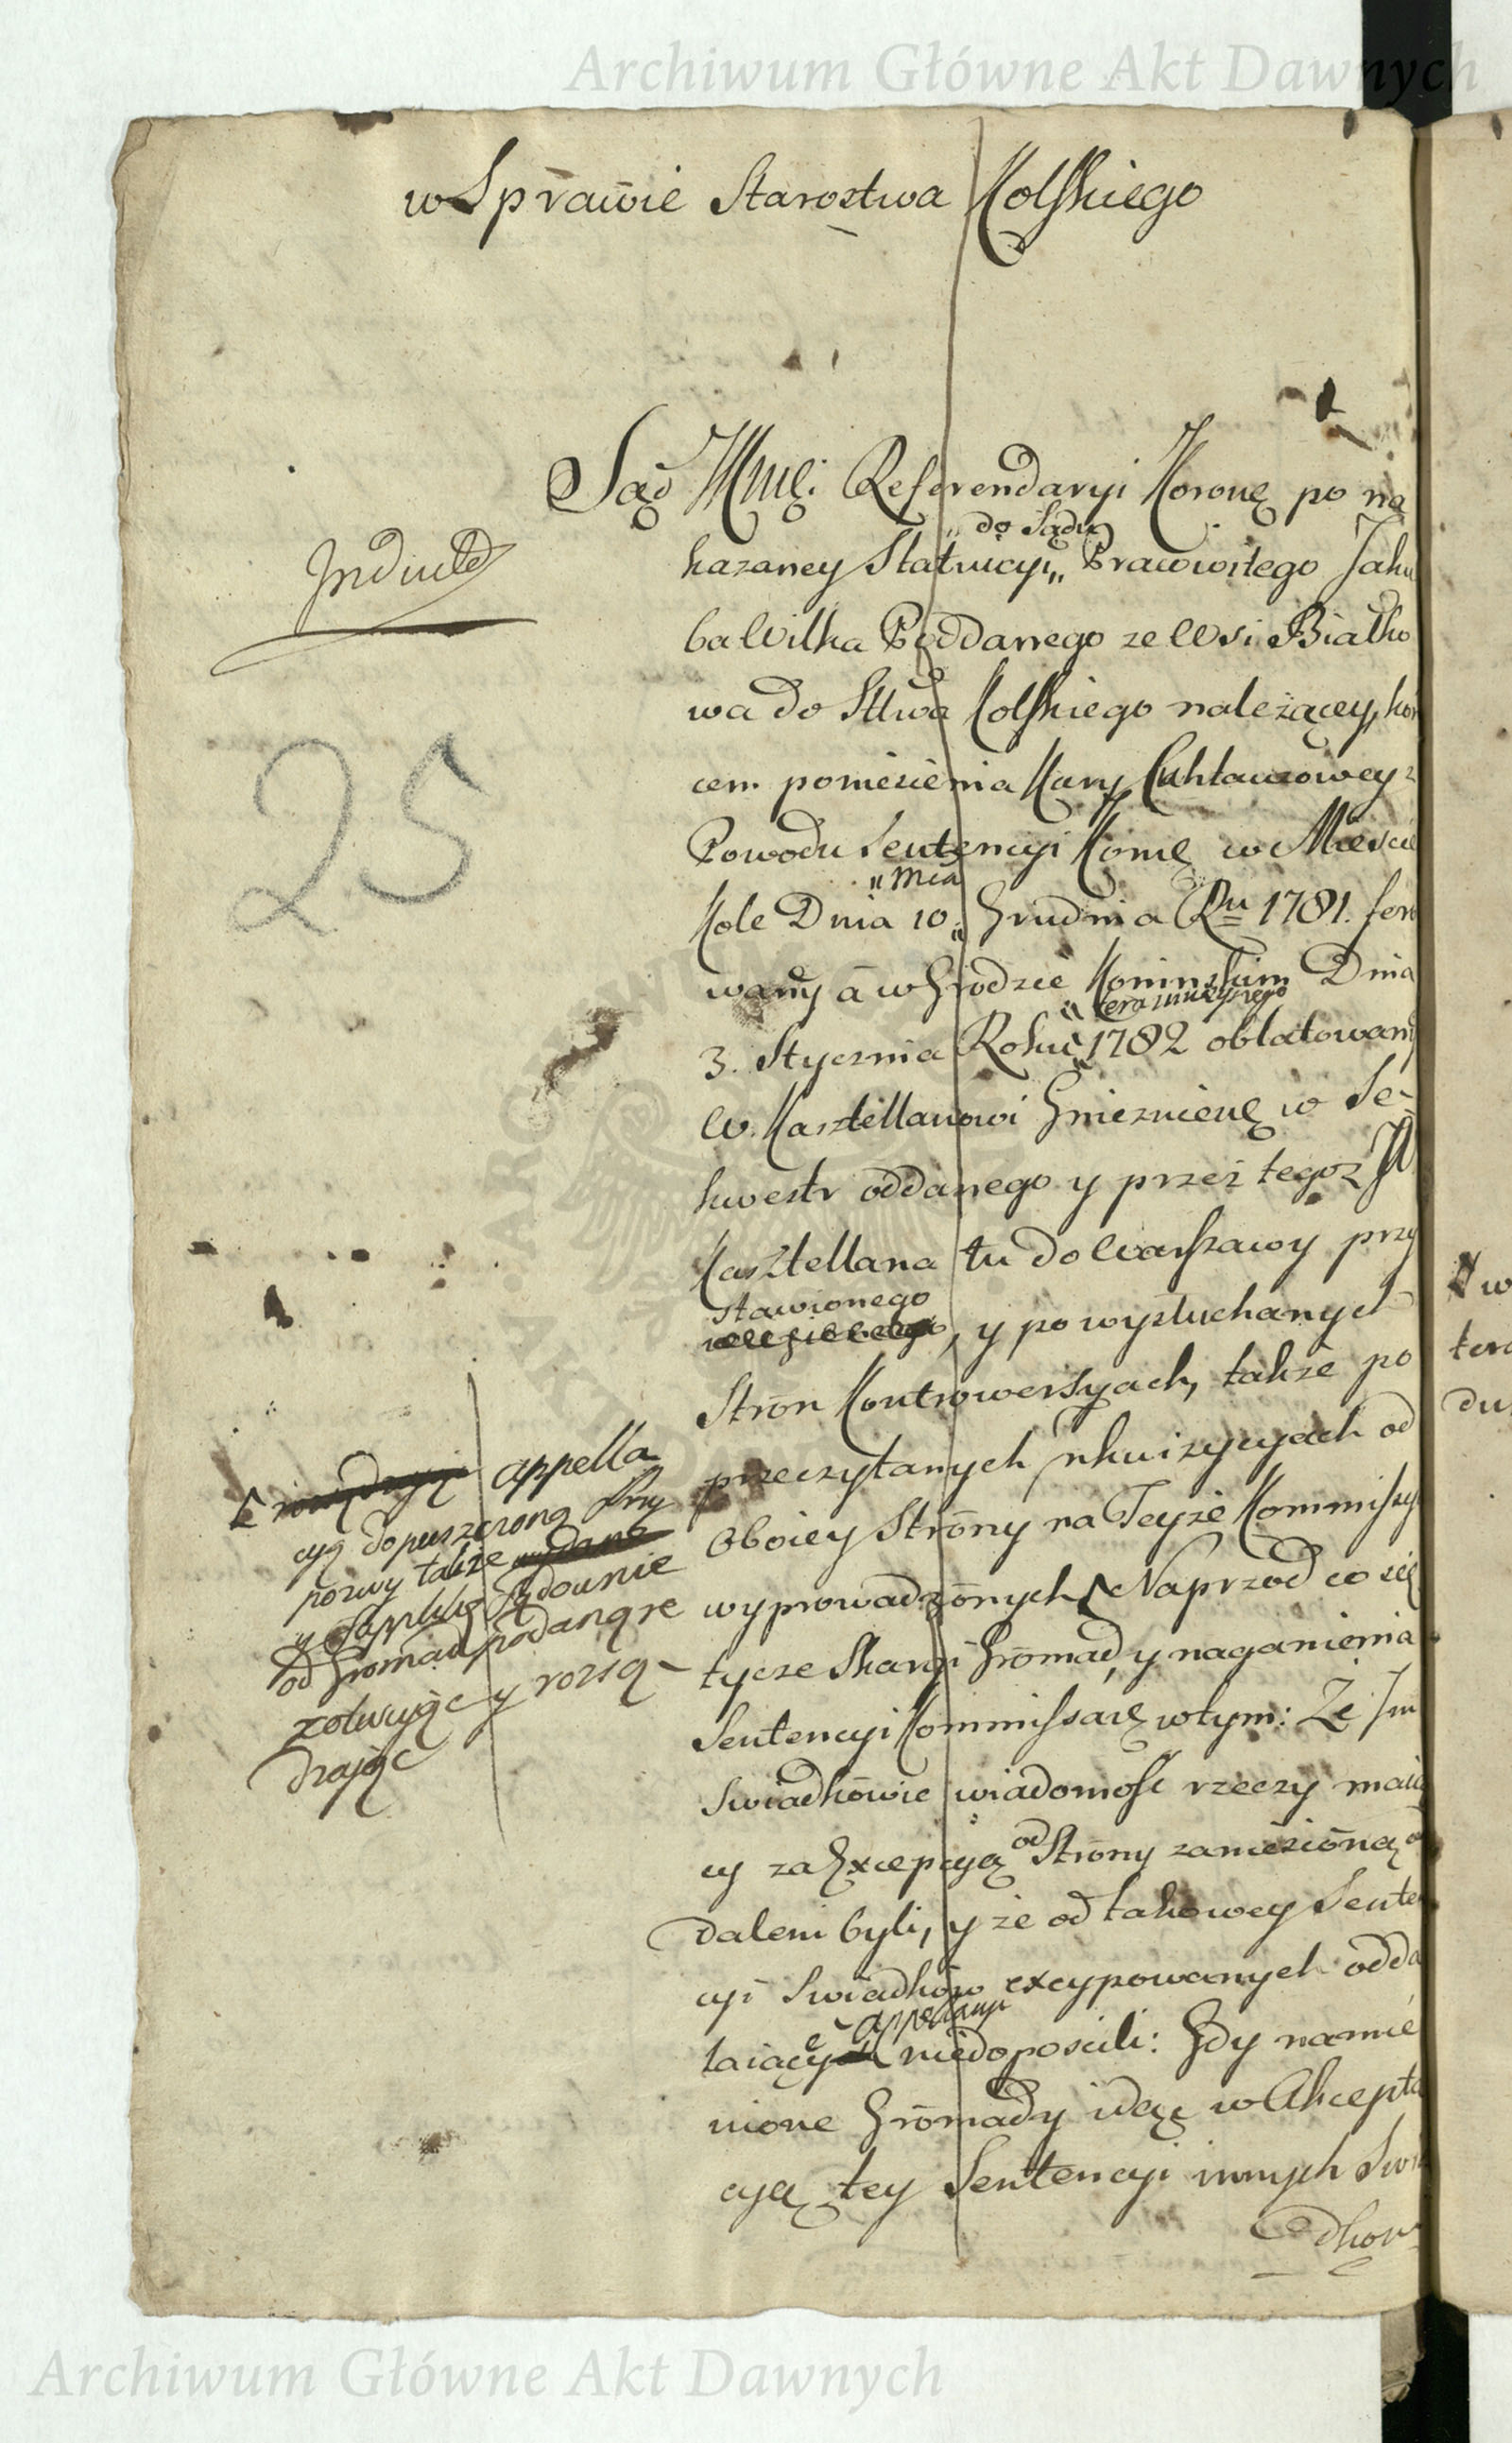 Archiwum Główne Akt Dawnych
w Sprawie Starostwa Kolskiego
Sąd JKMci Referendaryi Koronę po na
do Sądu
kazaney Statuicyi Pracowitego Jaku
ba Wilka Poddanego ze Wsi Białko
wa do Sttwa Kolskiego należącey, koń
cem poniesienia Kary
Powodu Sentencyi Komę w Mieście
Mca
Kole Dnia 10. Grudnia Ru 1781. fero
wany a w Grodzie Koninskim Dnia
teraznieyszego
3. Stycznia Roku 1782 oblatowany
W. Kasztellanowi Gnieznienę w Se-
kwestr oddanego y przez tegoz JW
Kasztellana tu do Warszawy przy
stawionego
, y po wysłuchanych
Stron Kontrowersyach, także po
przeczytanych Inkwizycyach od
Oboiey Strony na Teyże Kommissyi
wyprowadzonych Naprzod co się
tycze Skargi Gromad, y naganienia
Sentencyi Kommissarę w tym: Że Im
Swiadkowie wiadomość rzeczy maią
cy za Excepcyą od Strony zaniesioną od
daleni byli, y że od takowey Senten
cyi Swiadkow excypowanych odda
appellacyi
laiącey niedoposcili: Gdy namie
nione Gromady idąc w Akcepta
cyą tey Sentencyi innych Swia
dkow
Inducta
25
appella
cyą dopuszczoną Przy
pozwy także
y Supplikę Sądownie
od Gromad podaną re
zolwuiąc y rozsą-
dzaiąc
Archiwum Główne Akt Dawnych